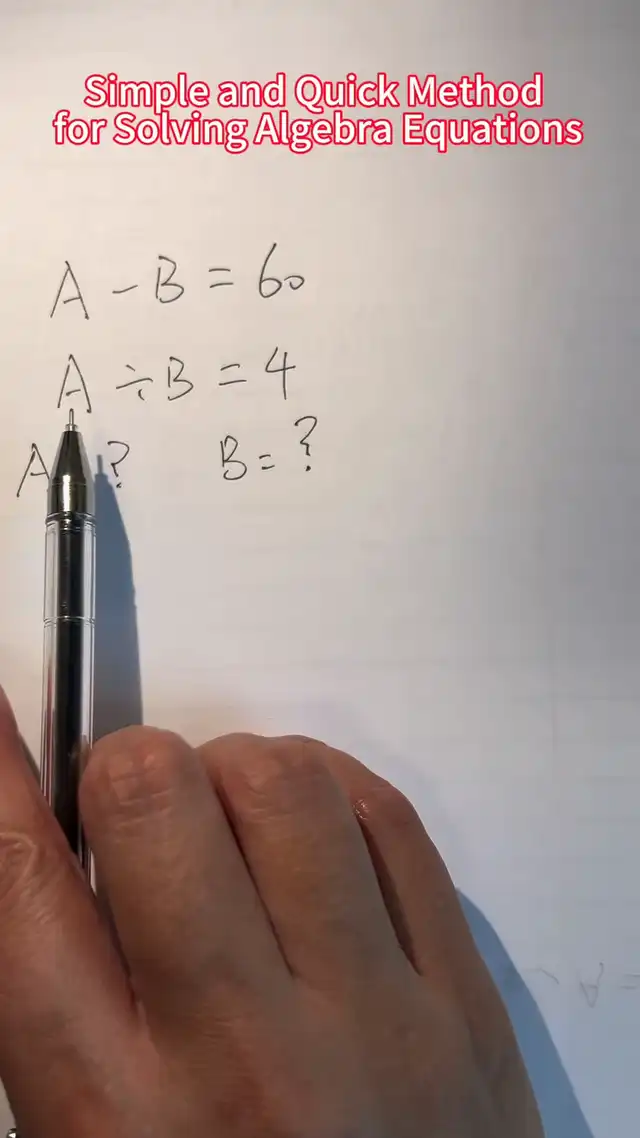 Simple and Quick Method
for Solving Algebra Equations
A - B = 60
A ÷ B = 4
A ? B = ?